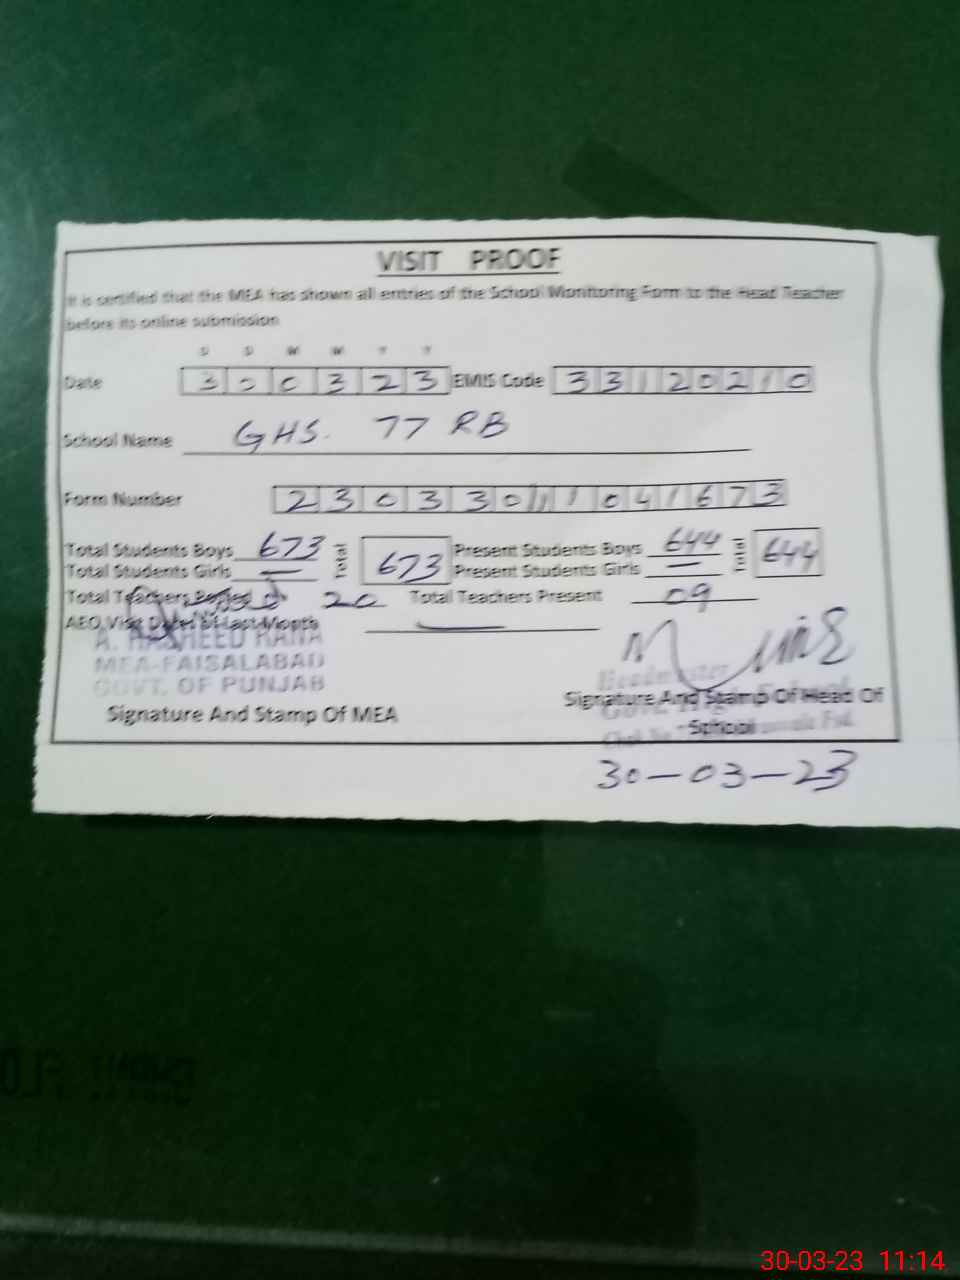 VISIT PROOF
It is certified that the MEA has shown all entries of the School Monitoring Form to the Head Teacher
before its online submission
D D M M Y Y
Date 3 0 0 3 2 3 EMIS Code 3 3 1 2 0 2 1 0
School Name GHS. 77 RB
Form Number 2 3 0 3 3 0 1 1 1 0 4 1 6 7 3
Total Students Boys 673 Total 673 Present Students Boys 644 Total 644
Total Students Girls — Present Students Girls —
Total Teachers Posted 20 Total Teachers Present 09
AEO Visit Dates of Last Month —
A. RASHEED RANA
MEA-FAISALABAD
GOVT. OF PUNJAB
Signature And Stamp Of MEA
Headmaster
Signature And Stamp Of Head Of
School
30-03-23
30-03-23 11:14